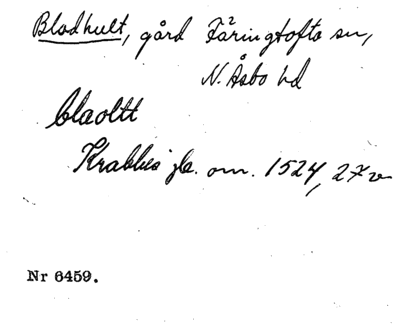 Blodhult, gård Färingtofta sn,
N. Åsbo hd
blaoltt
Krabbes jb. om. 1524, 27 v
Nr 6459.